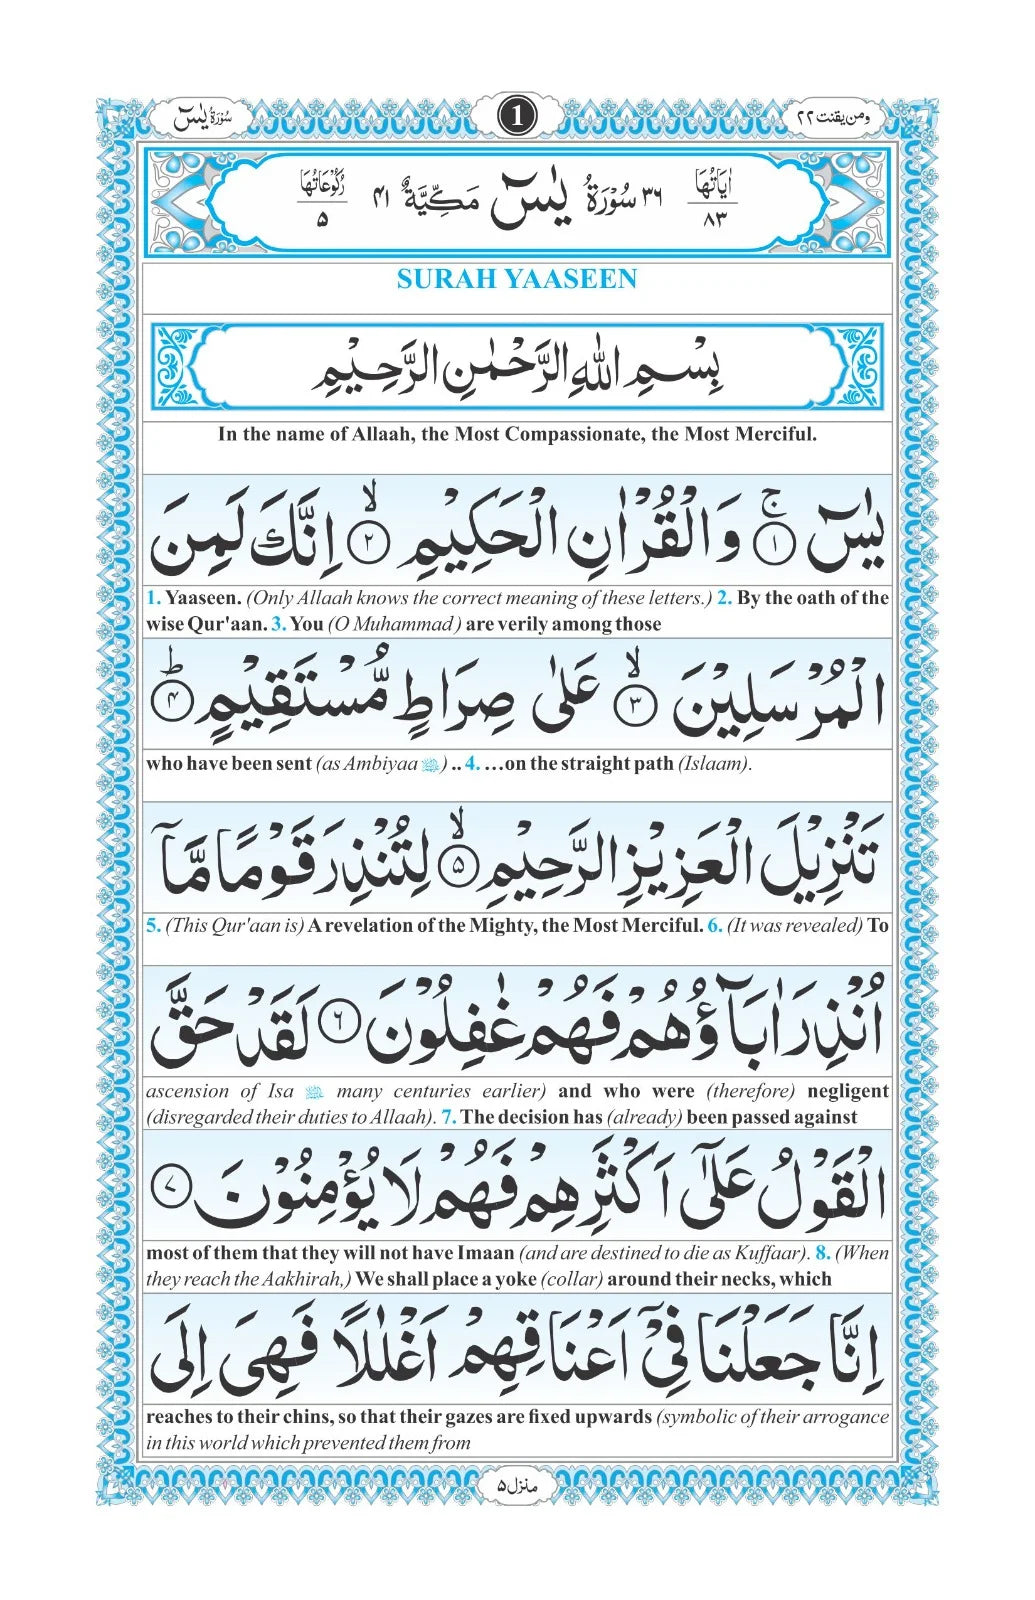 سُوْرَةُ يٰسٓ
1
ومن يقنت ٢٢
اٰيَاتُهَا ٨٣
٣٦ سُوْرَةُ يٰسٓ مَكِّيَّةٌ ٤١
رُكُوْعَاتُهَا ٥
SURAH YAASEEN
بِسْمِ اللّٰهِ الرَّحْمٰنِ الرَّحِيْمِ
In the name of Allaah, the Most Compassionate, the Most Merciful.
يٰسٓ ۚ ﴿١﴾ وَالْقُرْاٰنِ الْحَكِيْمِ ۙ ﴿٢﴾ اِنَّكَ لَمِنَ
1. Yaaseen. (Only Allaah knows the correct meaning of these letters.) 2. By the oath of the
wise Qur'aan. 3. You (O Muhammad ) are verily among those
الْمُرْسَلِيْنَ ۙ ﴿٣﴾ عَلٰى صِرَاطٍ مُّسْتَقِيْمٍ ؕ ﴿٤﴾
who have been sent (as Ambiyaa ) .. 4. …on the straight path (Islaam).
تَنْزِيْلَ الْعَزِيْزِ الرَّحِيْمِ ۙ ﴿٥﴾ لِتُنْذِرَ قَوْمًا مَّاۤ
5. (This Qur'aan is) A revelation of the Mighty, the Most Merciful. 6. (It was revealed) To
اُنْذِرَ اٰبَآؤُهُمْ فَهُمْ غٰفِلُوْنَ ﴿٦﴾ لَقَدْ حَقَّ
ascension of Isa many centuries earlier) and who were (therefore) negligent
(disregarded their duties to Allaah). 7. The decision has (already) been passed against
الْقَوْلُ عَلٰٓى اَكْثَرِهِمْ فَهُمْ لَا يُؤْمِنُوْنَ ﴿٧﴾
most of them that they will not have Imaan (and are destined to die as Kuffaar). 8. (When
they reach the Aakhirah,) We shall place a yoke (collar) around their necks, which
اِنَّا جَعَلْنَا فِيْۤ اَعْنَاقِهِمْ اَغْلٰلًا فَهِيَ اِلَى
reaches to their chins, so that their gazes are fixed upwards (symbolic of their arrogance
in this world which prevented them from
منزل ٥